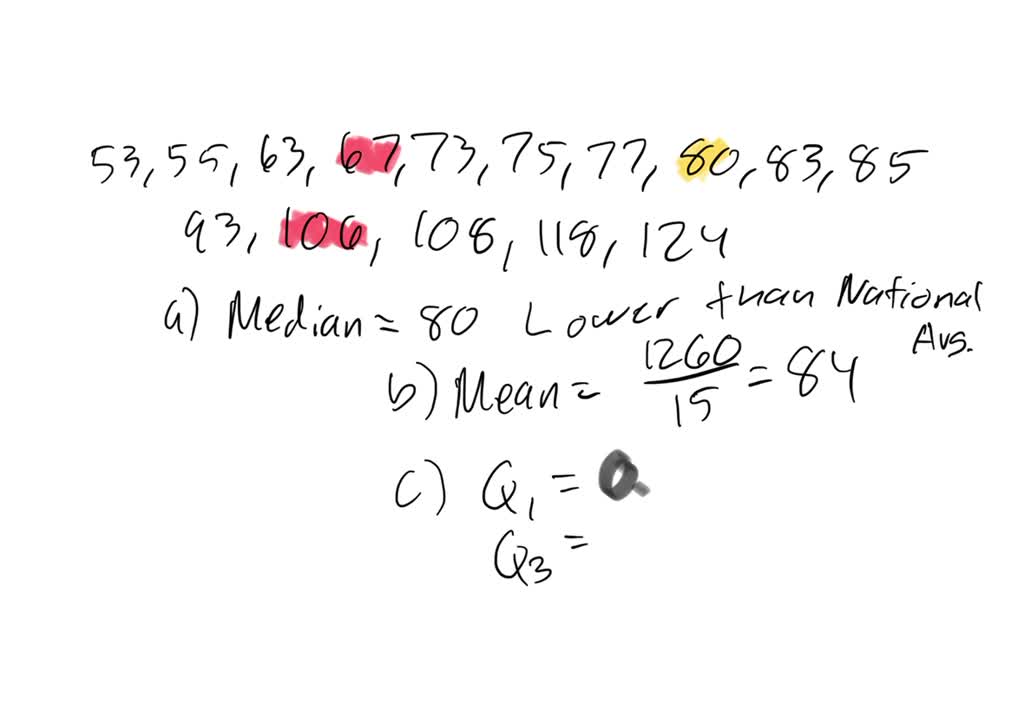 53, 55, 63, 67, 73, 75, 77, 80, 83, 85
93, 106, 108, 118, 124
a) Median = 80 Lower than National Avg.
b) Mean = 1260/15 = 84
c) Q1 =
Q3 =